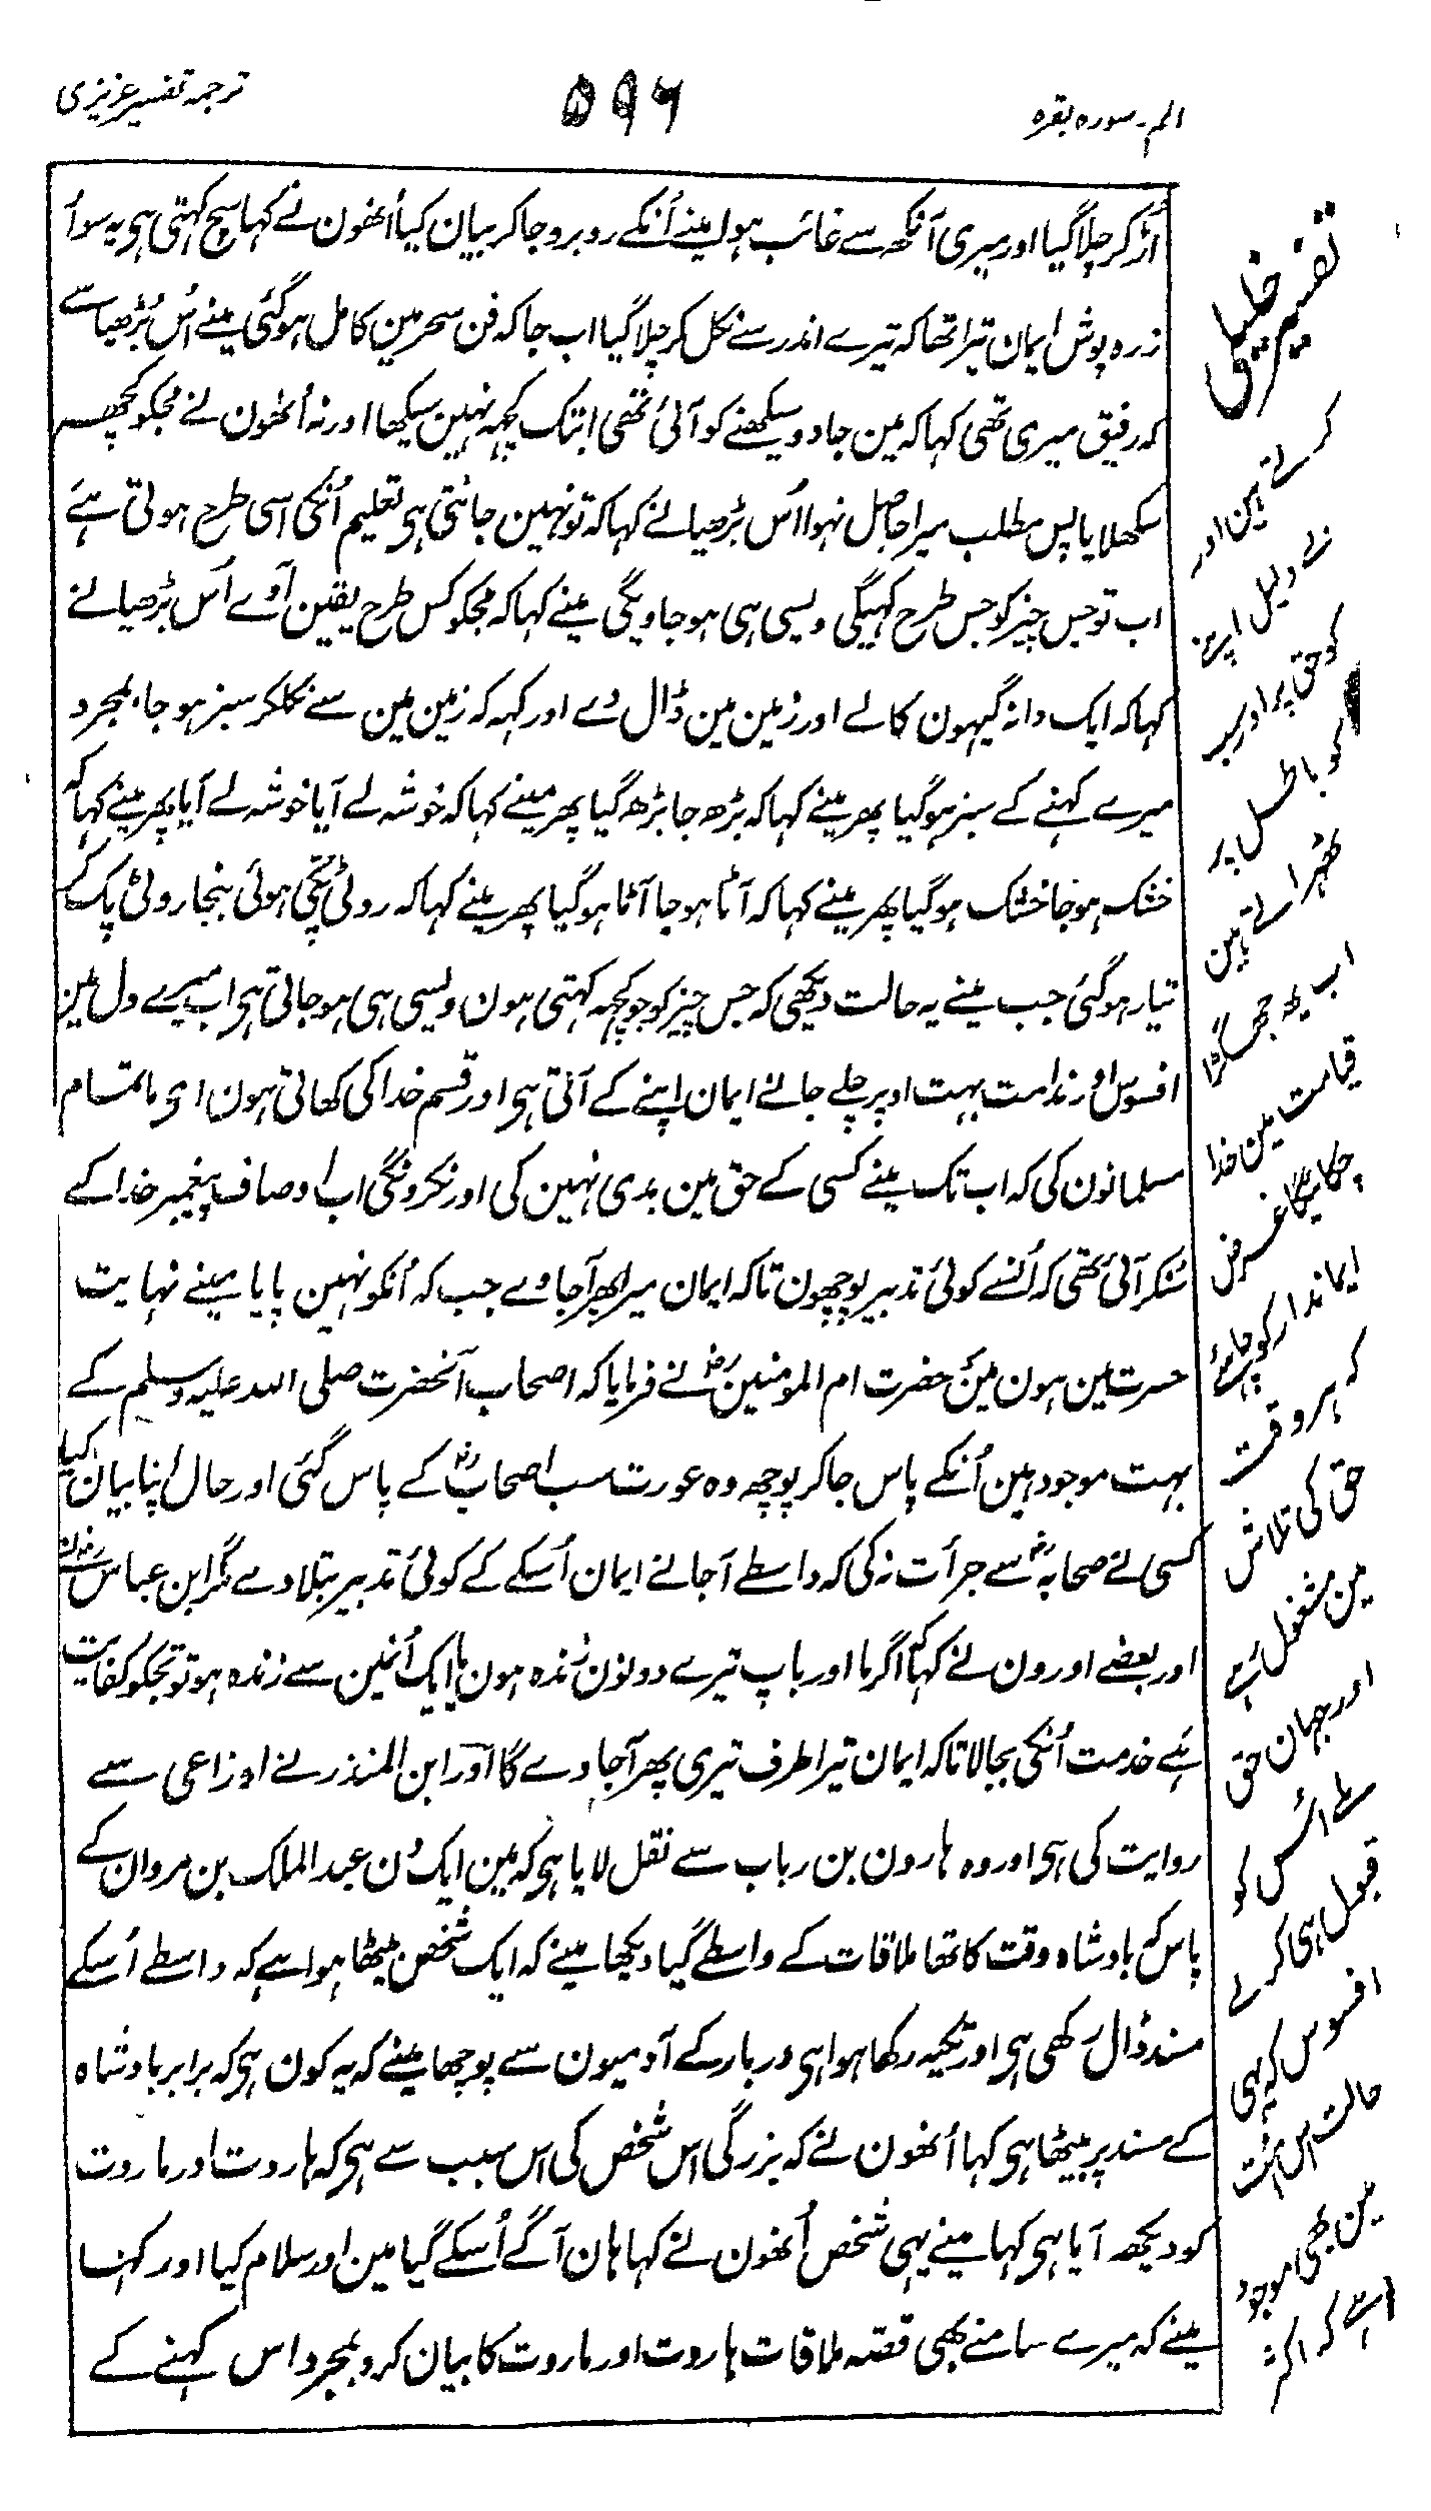 الم۔ سورہ بقرہ
۵۹۶
ترجمہ تفسیر عزیزی
اُڑ کر چلا گیا اور میری آنکھ سے غائب ہوا مینے اُنکے روبرو جا کر بیان کیا اُنھون نے کہا سچ کہتی ہی یہ سوا
زرہ پوش ایمان تیرا تھا کہ تیرے اندر سے نکل کر چلا گیا اب جا کہ فن سحر مین کامل ہوگئی مینے اُس بُڑھیا سے
کہ رفیق میری تھی کہا کہ مین جادو سیکھنے کو آئی تھی ابتک کچہہ نہین سیکھا اور نہ اُنھون نے مجکو کچھہ
سکھلایا پس مطلب میرا حاصل نہوا اُس بڑھیا نے کہا کہ تو نہین جانتی ہی تعلیم اُنکی اسی طرح ہوتی ہے
اب تو جس چیز کو جس طرح کہیگی ویسی ہی ہو جاویگی مینے کہا کہ مجکو کس طرح یقین آوے اُس بڑھیا نے
کہا کہ ایک دانہ گیہون کا لے اور زمین مین ڈال دے اور کہہ کہ زمین مین سے نکلکر سبز ہو جا، بمجرد
میرے کہنے کے سبز ہوگیا پھر مینے کہا کہ بڑھ جا بڑھ گیا پھر مینے کہا کہ خوشہ لے آیا خوشہ لے آیا پھر مینے کہا کہ
خشک ہو جا خشک ہوگیا پھر مینے کہا کہ آٹا ہو جا آٹا ہوگیا پھر مینے کہا کہ روٹی پکی ہوئی بنجا روٹی پک کر
تیار ہوگئی جب مینے یہ حالت دیکھی کہ جس چیز کو جو کچہہ کہتی ہون ویسی ہی ہو جاتی ہی اب میرے دل مین
افسوس اور ندامت بہت اوپر چلے جانے ایمان اپنے کے آتی ہی اور قسم خدا کی کھاتی ہون ای ما تمام
مسلمانون کی کہ اب تک مینے کسی کے حق مین بدی نہین کی اور نکرونگی اب اوصاف پیغمبر خدا کے
سُنکر آئی تھی کہ اُنسے کوئی تدبیر پوچھون تاکہ ایمان میرا پھر آجاوے جب کہ اُنکو نہین پایا مینے نہایت
حسرت مین ہون مین حضرت ام المومنین رض نے فرمایا کہ اصحاب آنحضرت صلی اللہ علیہ وسلم کے
بہت موجود ہین اُنکے پاس جا کر پوچھہ وہ عورت سب اصحاب رض کے پاس گئی اور حال اپنا بیان کیا
کسی نے صحابہ رض سے جرأت نہ کی کہ واسطے آجانے ایمان اُسکے کے کوئی تدبیر بتلاوے مگر ابن عباس رض نے
اور بعضے اورون نے کہا کہ اگر ما اور باپ تیرے دونون زندہ ہون یا ایک اُنمین سے زندہ ہو تو تجکو کفایت
ہے خدمت اُنکی بجا لا تاکہ ایمان تیرا طرف تیری پھر آجاوے گا اور ابن المنذر نے اوزاعی سے
روایت کی ہی اور وہ ہارون بن رباب سے نقل لایا ہی کہ مین ایک دن عبد الملک بن مروان کے
پاس کہ بادشاہ وقت کا تھا ملاقات کے واسطے گیا دیکھا مینے کہ ایک شخص بیٹھا ہوا ہے کہ واسطے اُسکے
مسند ڈال رکھی ہی اور تکیہ رکھا ہوا ہی دربار کے آدمیون سے پوچھا مینے کہ یہ کون ہی کہ برابر بادشاہ
کے مسند پر بیٹھا ہی کہا اُنھون نے کہ بزرگی اس شخص کی اس سبب سے ہی کہ ہاروت اور ماروت
کو دیکھہ آیا ہی کہا مینے یہی شخص اُنھون نے کہا ہان آگے اُسکے گیا مین اور سلام کیا اور کہا
مینے کہ میرے سامنے بھی قصہ ملاقات ہاروت اور ماروت کا بیان کرو بمجرد اس کہنے کے
تفسیر خلیل
کرتے ہین اور
بے دلیل اپنے
کو حق پر اور
کو باطل پر
ٹھراتے ہین
اب یہ جھگڑا
قیامت مین خدا
چکائیگا غرض
ایماندار کو چاہئے
کہ ہر وقت
حق کی تلاش
مین مشغول رہے
اور جہان حق
ملے اُس کو
قبول ہی کرلے
افسوس کہ یہی
حالت اس امت
مین بھی موجود
ہے کہ اکثر